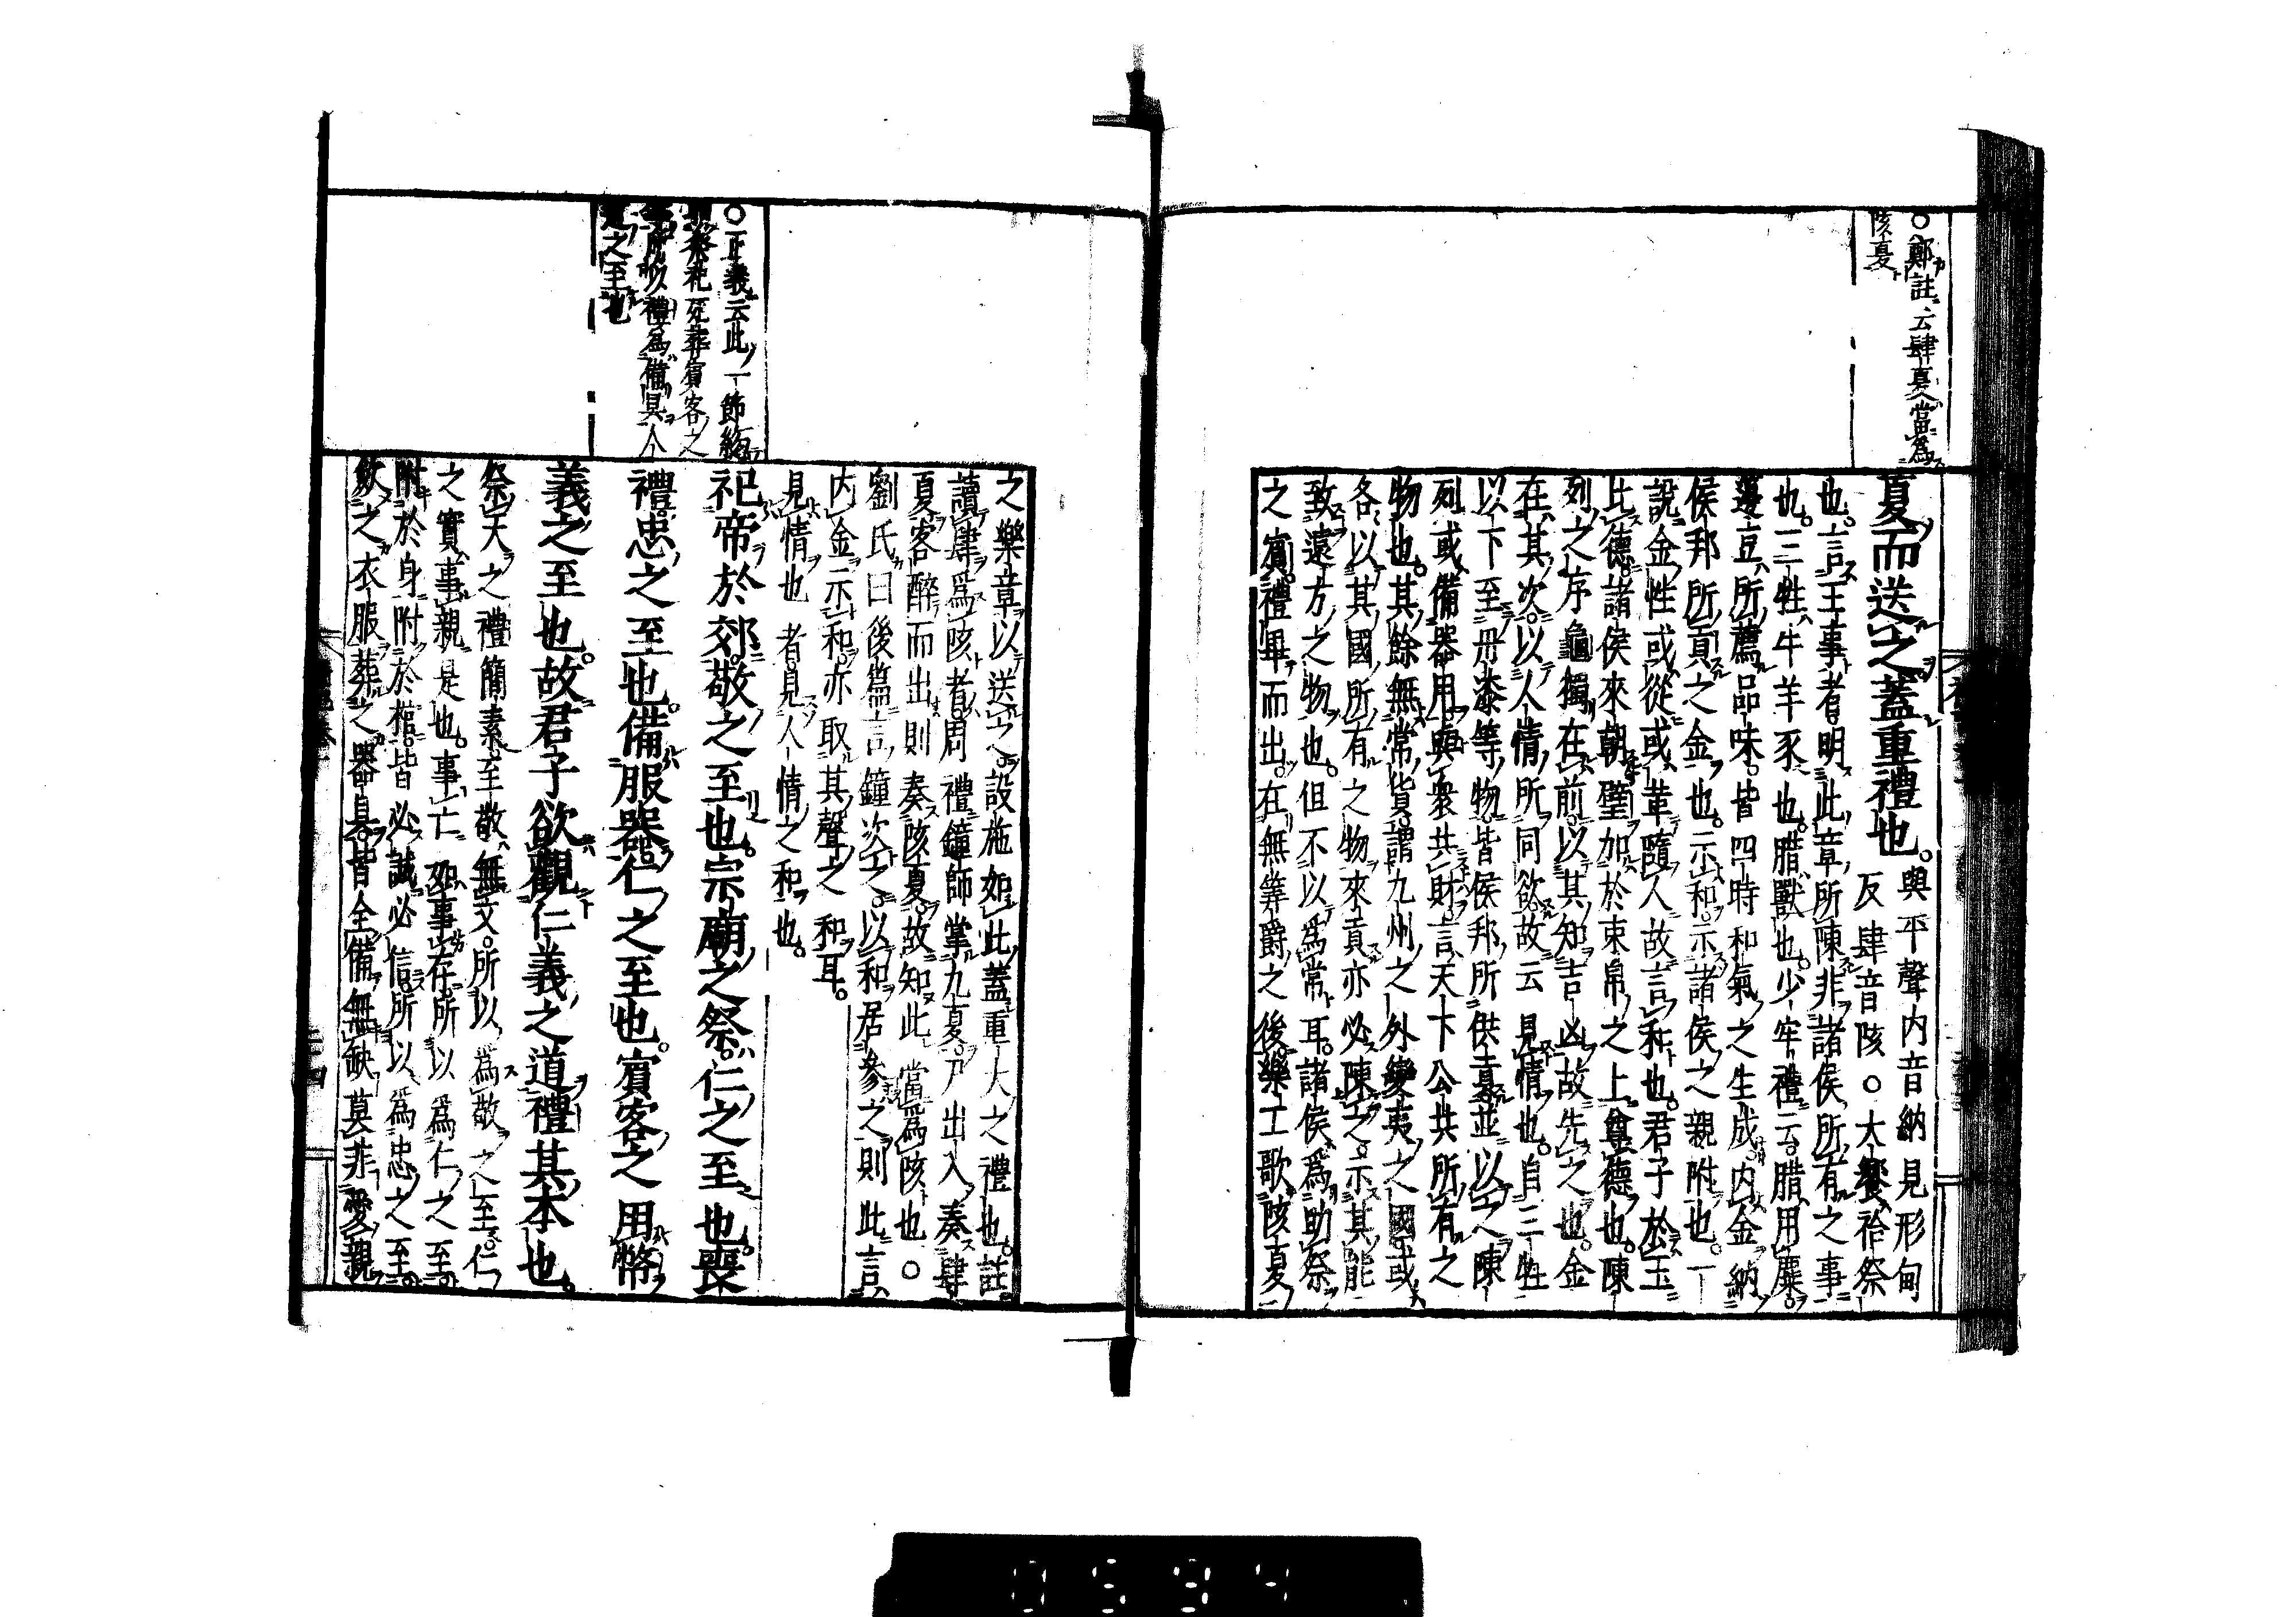 ○鄭註云肆夏當爲
陔夏
夏而送之蓋重禮也。與平聲内音納見形甸
反肆音陔○大饗祫祭
也。言王事者明此章所陳非諸侯所有之事
也。三牲牛羊豕也。腊獸也。少牢禮云腊用麋。
籩豆所薦品味。皆四時和氣之生成内金納
侯邦所貢之金也。示和。示諸侯之親附也。一
說金性或從或革隨人故言和也。君子於玉
比德。諸侯來朝璧加於束帛之上尊德也。陳
列之序龜獨在前。以其知吉凶故先之也。金
在其次。以人情所同欲故云見情也。自三牲
以下至丹漆等物。皆侯邦所供貢並以之陳
列或備器用。與衆共財。言天下公共所有之
物也。其餘無常貨。謂九州之外蠻夷之國或
各以其國所有之物來貢亦必陳之。示其能
致遠方之物也。但不以爲常耳。諸侯爲助祭
之賓。禮畢而出。在無筭爵之後。樂工歌陔夏
之樂章以送之。設施如此蓋重大之禮也。註
讀肆爲陔者。周禮鐘師掌九夏。尸出入奏肆
夏客醉而出則奏陔夏。故知此當爲陔也。○
劉氏曰後篇言鐘次之。以和居參之則此言
内金示和。亦取其聲之和耳。
見情也者。見人情之和也。
○正義云此一節緫
明祭祀死葬賓客之
事所以禮爲備具人
道之至也
祀帝於郊。敬之至也。宗廟之祭。仁之至也。喪
禮。忠之至也。備服器。仁之至也。賓客之用幣
義之至也。故君子欲觀仁義之道禮其本也。
祭天之禮簡素。至敬無文。所以爲敬之至。仁
之實。事親是也。事亡如事存。所以爲仁之至。
附於身附於棺。皆必誠必信。所以爲忠之至。
斂之衣服葬之器具。皆全備無缺莫非愛親